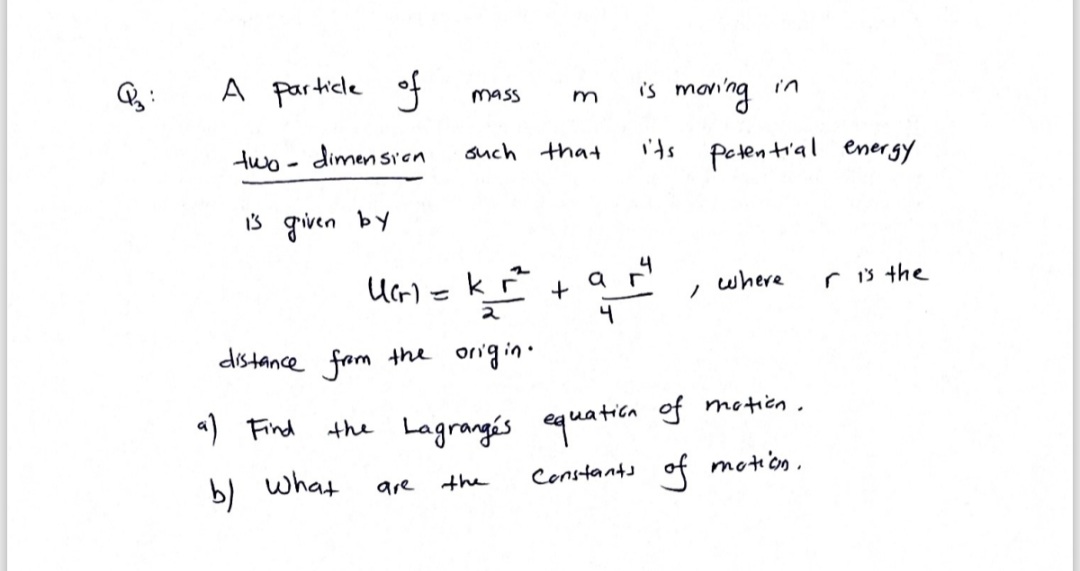 Q3: A particle of mass m is moving in
two-dimension such that it's potential energy
is given by
U(r) = k r²/2 + a r⁴/4 , where r is the
distance from the origin.
a) Find the Lagrange's equation of motion.
b) What are the constants of motion.